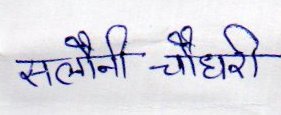 सलौनी चौधरी